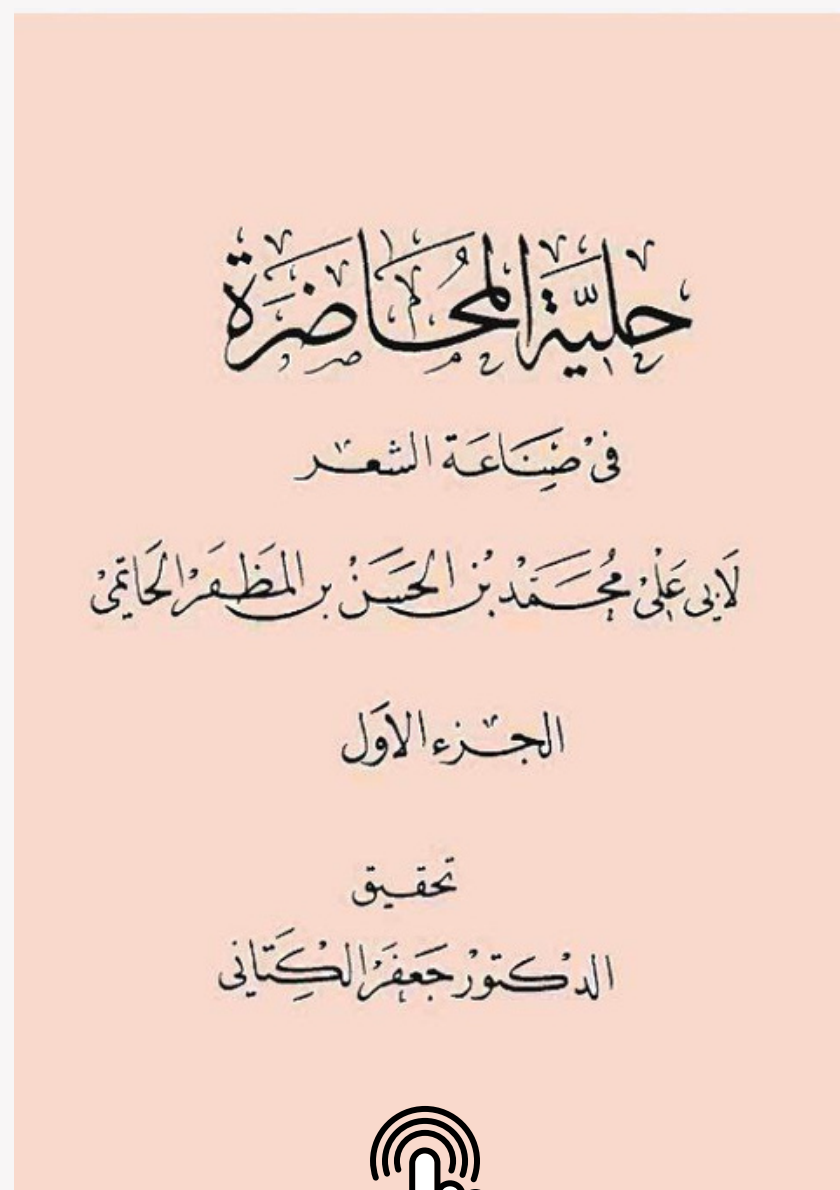 حلية المحاضرة
فى صناعة الشعر
لأبى على محمد بن الحسن بن المظفر الحاتمى
الجزء الأول
تحقيق
الدكتور جعفر الكتانى